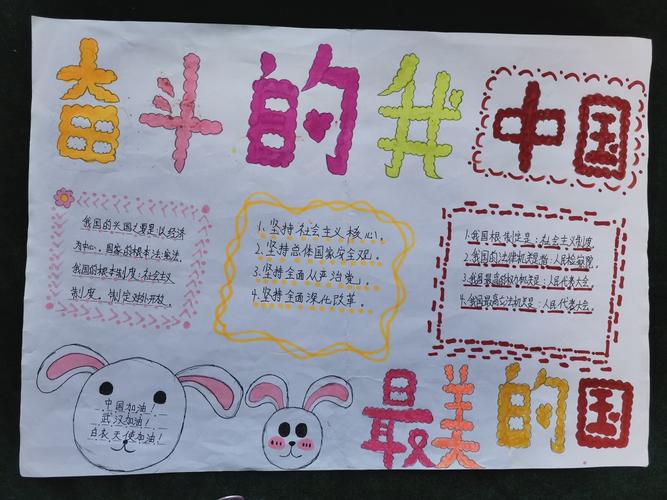 奋斗的我中国
我国的兴国之要是:以经济
为中心。国家的根本法:宪法
我国的根本制度:社会主义
制度。制定对外开放。
1.坚持社会主义核心。
2.坚持总体国家安全观。
3.坚持全面从严治党。
4.坚持全面深化改革。
1.我国根制定是:社会主义制度
2.我国的法律机关是指:人民检察院。
3.我国最高的权力机关是:人民代表大会
4.我国最高立法机关是:人民代表大会
中国加油!
武汉加油!
白衣天使加油!
最美的国